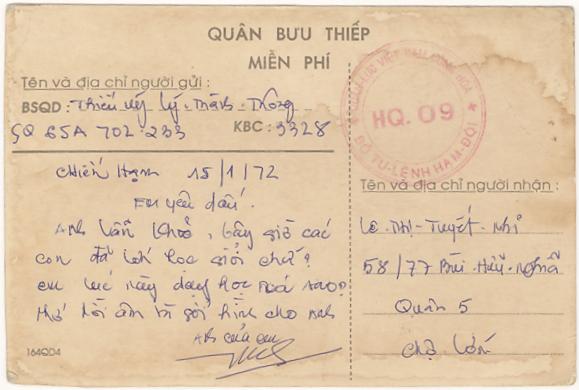 QUÂN BƯU THIẾP
MIỄN PHÍ
Tên và địa chỉ người gửi :
BSQD : Thiếu úy Lý-Thành-Thông
SQ 65A 702.233 KBC : 3328
QUÂN LỰC VIỆT NAM CỘNG HÒA
HQ. 09
BỘ TƯ-LỆNH HẠM-ĐỘI
Chiến Hạm 15/1/72
Em yêu dấu.
Anh vẫn khỏe, bây giờ các
con đã lớn học giỏi chứ?
em lúc này dạy học ra sao?
thư hồi âm và gởi hình cho anh
Anh của em
164QD4
Tên và địa chỉ người nhận :
Lê-Thị-Tuyết-Nhi
58/77 Bùi-Hữu-Nghĩa
Quân 5
Chợ Lớn